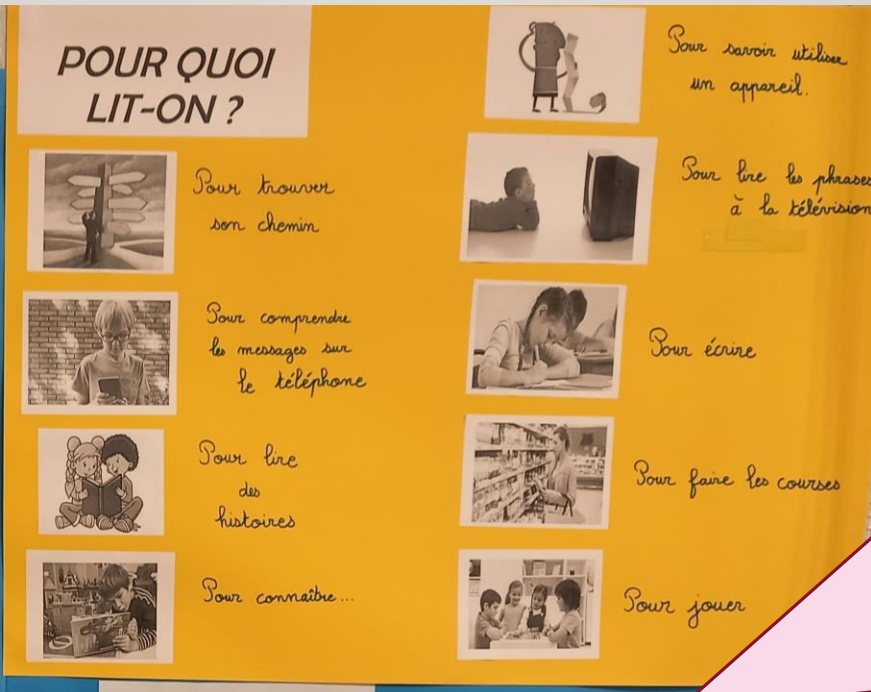 POUR QUOI
LIT-ON ?
Pour trouver
son chemin
Pour comprendre
les messages sur
le téléphone
Pour lire
des
histoires
Pour connaître...
Pour savoir utiliser
un appareil.
Pour lire les phrases
à la télévision
Pour écrire
Pour faire les courses
Pour jouer